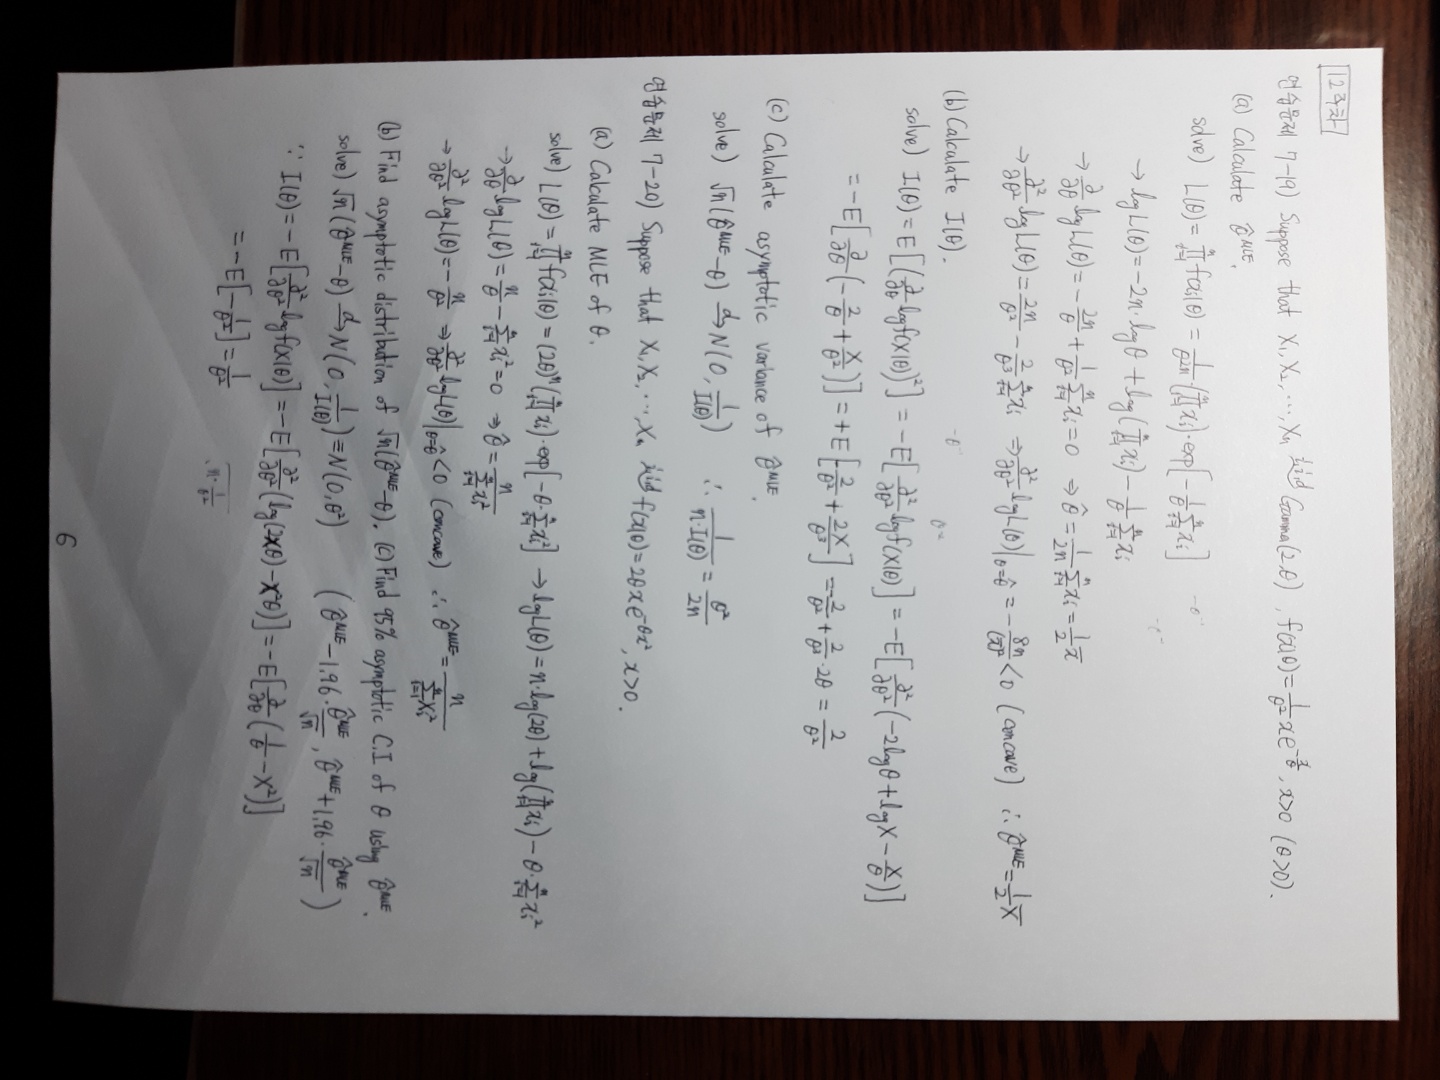 12주차
연습문제 7-19) Suppose that X₁, X₂, ⋯, Xₙ iid Gamma(2,θ), f(x|θ) = 1/θ² x e^(-x/θ), x>0 (θ>0).
(a) Calculate θ̂^MLE.
solve) L(θ) = ∏_{i=1}^n f(xᵢ|θ) = 1/θ^(2n) · (∏_{i=1}^n xᵢ) · exp[-1/θ ∑_{i=1}^n xᵢ]
→ log L(θ) = -2n·logθ + log(∏_{i=1}^n xᵢ) - 1/θ ∑_{i=1}^n xᵢ
→ ∂/∂θ log L(θ) = -2n/θ + 1/θ² ∑_{i=1}^n xᵢ = 0 ⇒ θ̂ = 1/2n ∑_{i=1}^n xᵢ = 1/2 x̄
→ ∂²/∂θ² log L(θ) = 2n/θ² - 2/θ³ ∑_{i=1}^n xᵢ ⇒ ∂²/∂θ² log L(θ)|_{θ=θ̂} = -8n/(x̄)² < 0 (concave) ∴ θ̂^MLE = 1/2 X̄
(b) Calculate I(θ).
solve) I(θ) = E[(∂/∂θ log f(X|θ))²] = -E[∂²/∂θ² log f(X|θ)] = -E[∂²/∂θ² (-2logθ + logX - X/θ)]
= -E[∂/∂θ (-2/θ + X/θ²)] = +E[-2/θ² + 2X/θ³] = -2/θ² + 2/θ³ · 2θ = 2/θ²
(c) Calculate asymptotic variance of θ̂^MLE.
solve) √n(θ̂^MLE - θ) →d N(0, 1/I(θ)) ∴ 1/(n·I(θ)) = θ²/2n
연습문제 7-20) Suppose that X₁, X₂, ⋯, Xₙ iid f(x|θ) = 2θxe^(-θx²), x>0.
(a) Calculate MLE of θ.
solve) L(θ) = ∏_{i=1}^n f(xᵢ|θ) = (2θ)ⁿ(∏_{i=1}^n xᵢ) · exp[-θ·∑_{i=1}^n xᵢ²] → log L(θ) = n·log(2θ) + log(∏_{i=1}^n xᵢ) - θ·∑_{i=1}^n xᵢ²
→ ∂/∂θ log L(θ) = n/θ - ∑_{i=1}^n xᵢ² = 0 ⇒ θ̂ = n/∑_{i=1}^n xᵢ²
→ ∂²/∂θ² log L(θ) = -n/θ² ⇒ ∂²/∂θ² log L(θ)|_{θ=θ̂} < 0 (concave) ∴ θ̂^MLE = n/∑_{i=1}^n Xᵢ²
(b) Find asymptotic distribution of √n(θ̂^MLE - θ). (c) Find 95% asymptotic C.I of θ using θ̂^MLE.
solve) √n(θ̂^MLE - θ) →d N(0, 1/I(θ)) ≡ N(0, θ²) (θ̂^MLE - 1.96·θ̂^MLE/√n, θ̂^MLE + 1.96·θ̂^MLE/√n)
∵ I(θ) = -E[∂²/∂θ² log f(X|θ)] = -E[∂²/∂θ² (log(2Xθ) - X²θ)] = -E[∂/∂θ (1/θ - X²)]
= -E[-1/θ²] = 1/θ²
6